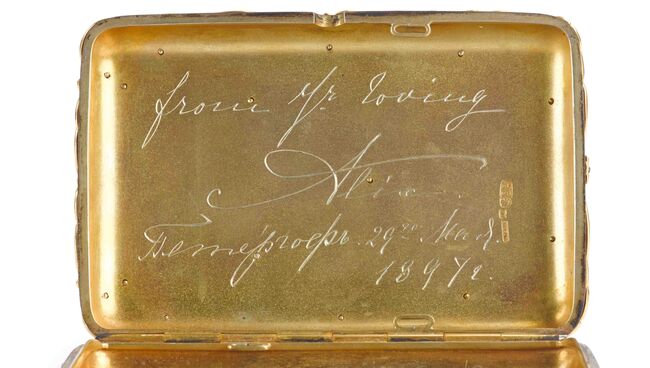 from Yr loving
Alix.
Петергофъ. 29го Мая.
1897г.